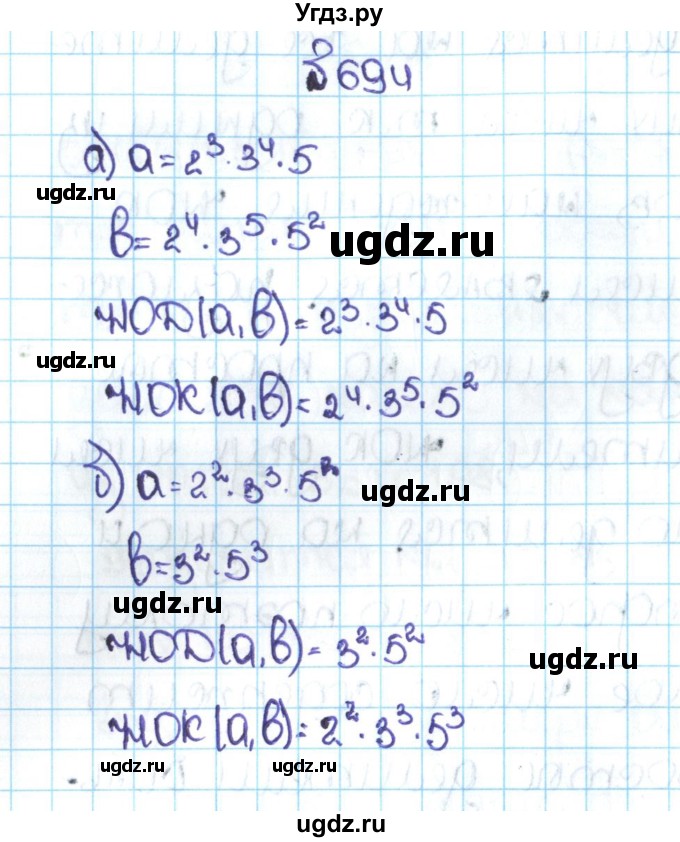 Угдз.ру
№694
а) a = 2³·3⁴·5
ugdz.ru
b = 2⁴·3⁵·5²
ugdz.ru
НОД(a, b) = 2³·3⁴·5
ugdz.ru
НОК(a, b) = 2⁴·3⁵·5²
б) a = 2²·3³·5²
ugdz.ru
b = 3²·5³
ugdz.ru
НОД(a, b) = 3²·5²
ugdz.ru
НОК(a, b) = 2²·3³·5³
ugdz.ru ugdz.ru
ugdz.ru